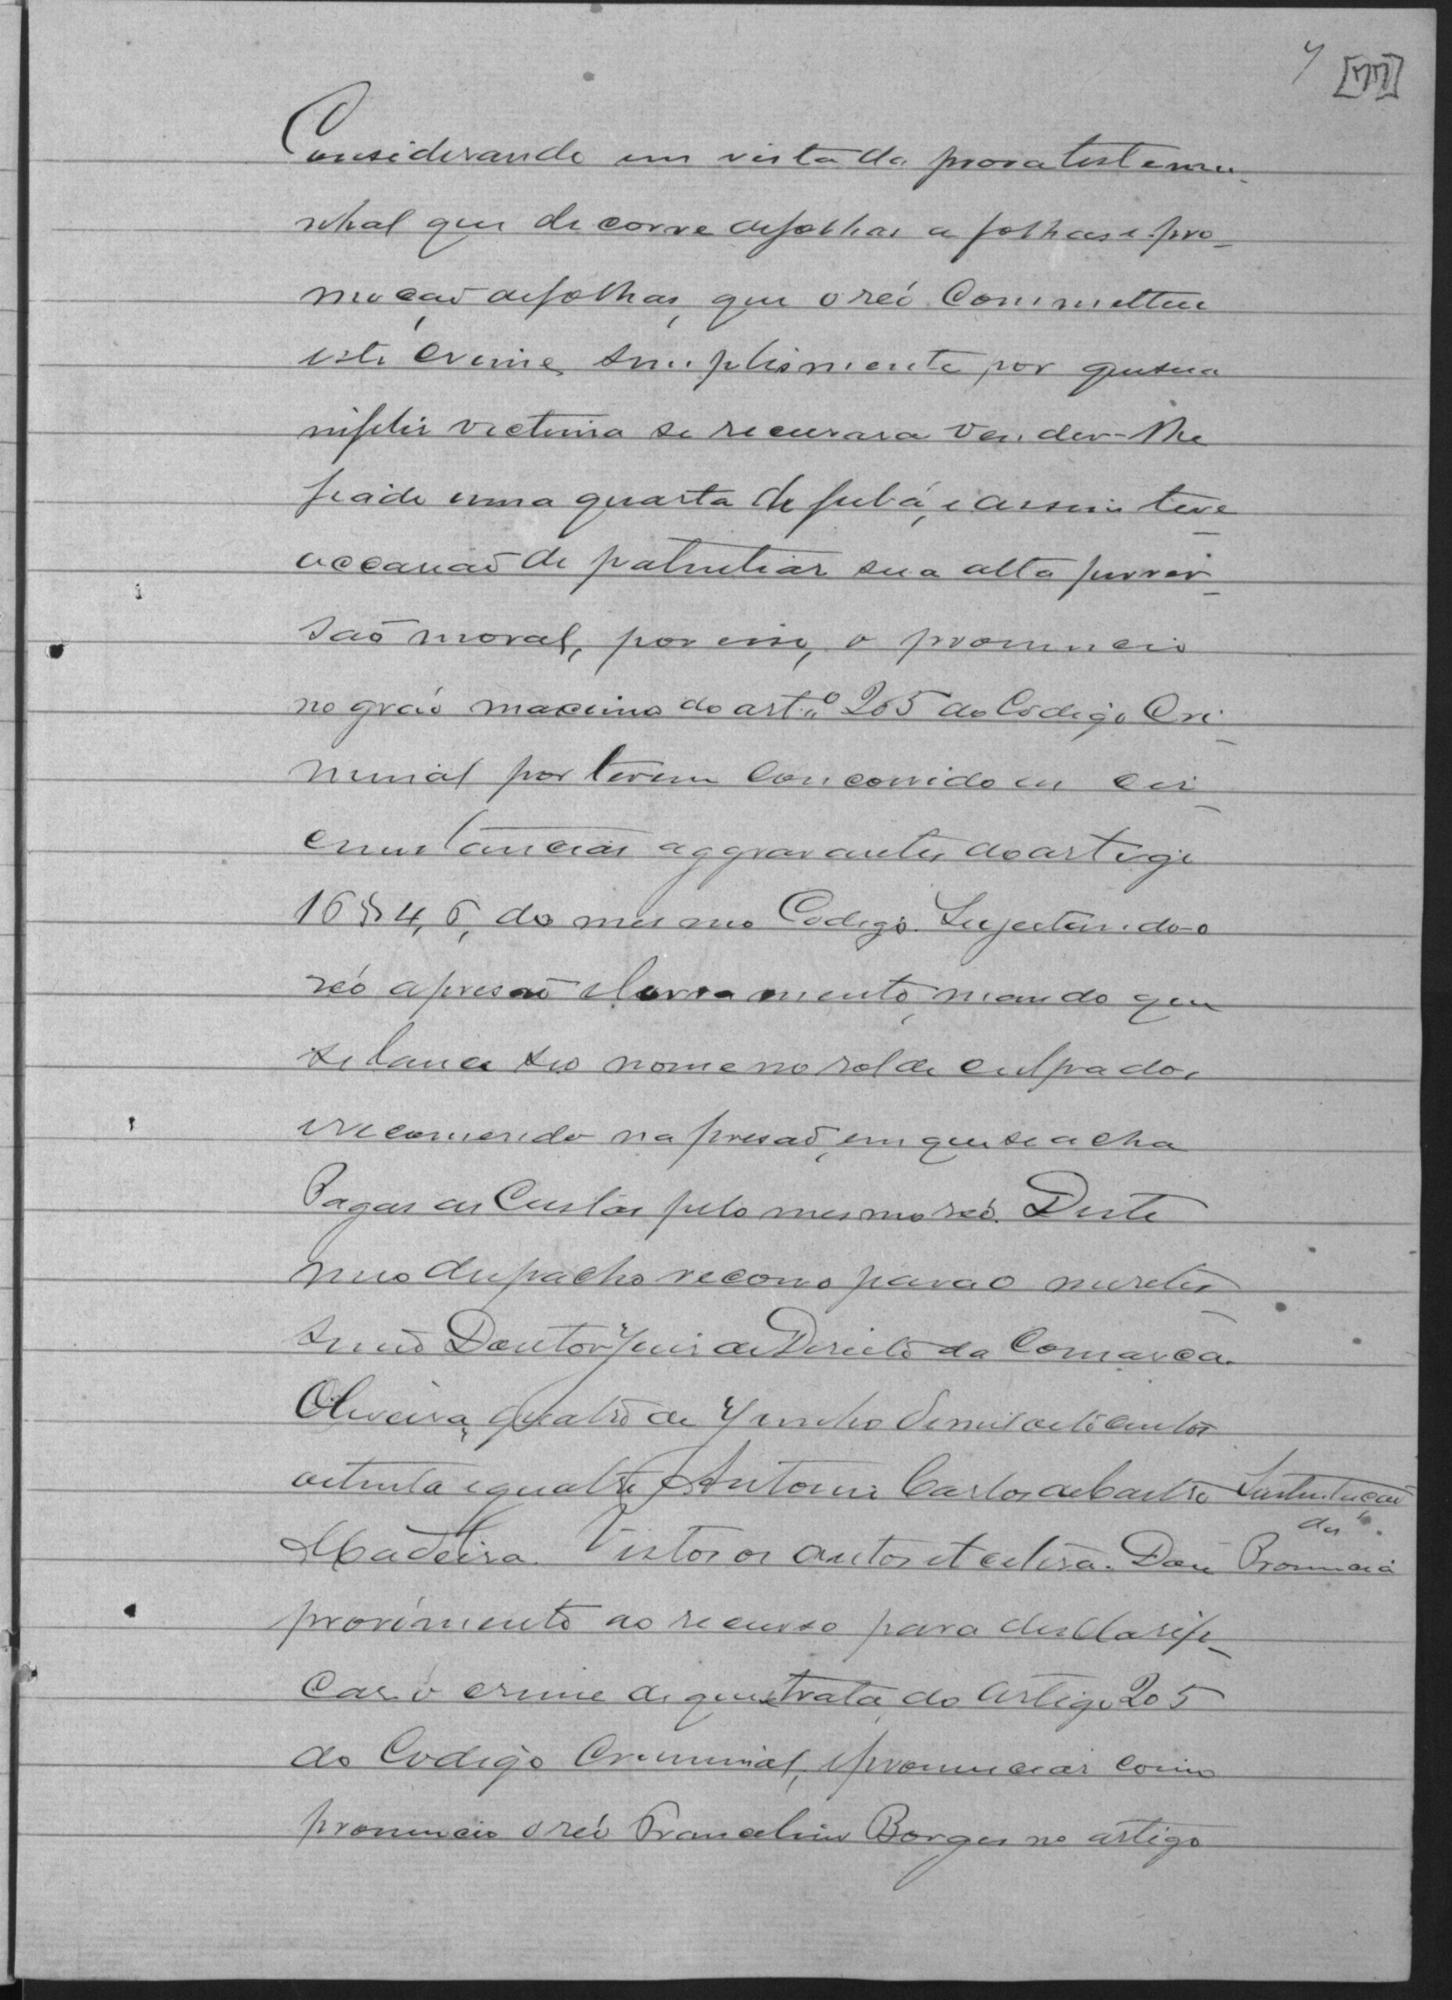 Considerando em vista da prova testemu-
nhal que decorre de folhas a folhas e pro-
moção de folhas, que o réo Commetteu
este Crime, simplismente por que sua
infeliz victima se recusara vender-lhe
fiado uma quarta de fubá, e assim teve
occasião de patentiar sua alta perver-
são moral, por isso, o pronuncio
no gráo maximo do artº 205 do Codigo Cri-
minal por terem Concorrido as cir-
cunstancias aggravantes do artigo
16 §§ 4, 6, do mesmo Codigo. Sujeitando-o
réo a presão e livramento, mando que
se lance seo nome no rol de culpados
e recomendo na presão, em que se acha
Pagas as Custas pelo mesmo réo. Deste
meo despacho recorro para o meretis
simo Doutor Juis de Direito da Comarca.
Oliveira, quatro de Junho de mil oito centos
oitenta e quatro Antonio Carlos de Castro
Madeira. Vistos os autos et cetera. Dou
Sustentação
da
Pronuncia
provimento ao recurso para desclasifi-
car o crime de que se trata, do artigo 205
do Codigo Criminal, e pronunciar como
pronuncio o réo Francelino Borges no artigo